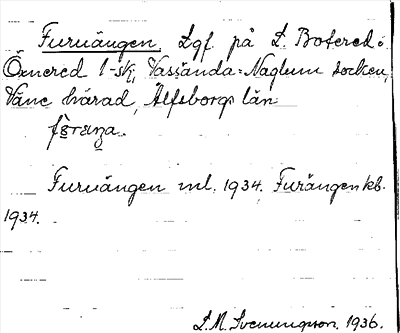 Furuängen, Lgf. på L. Botered i
Öxnered 1-sk, Vassända-Naglum socken,
Väne härad, Älfsborgs län.
Furuängen ml. 1934. Furängen kb.
1934.
L. M. Svenungsson. 1936.